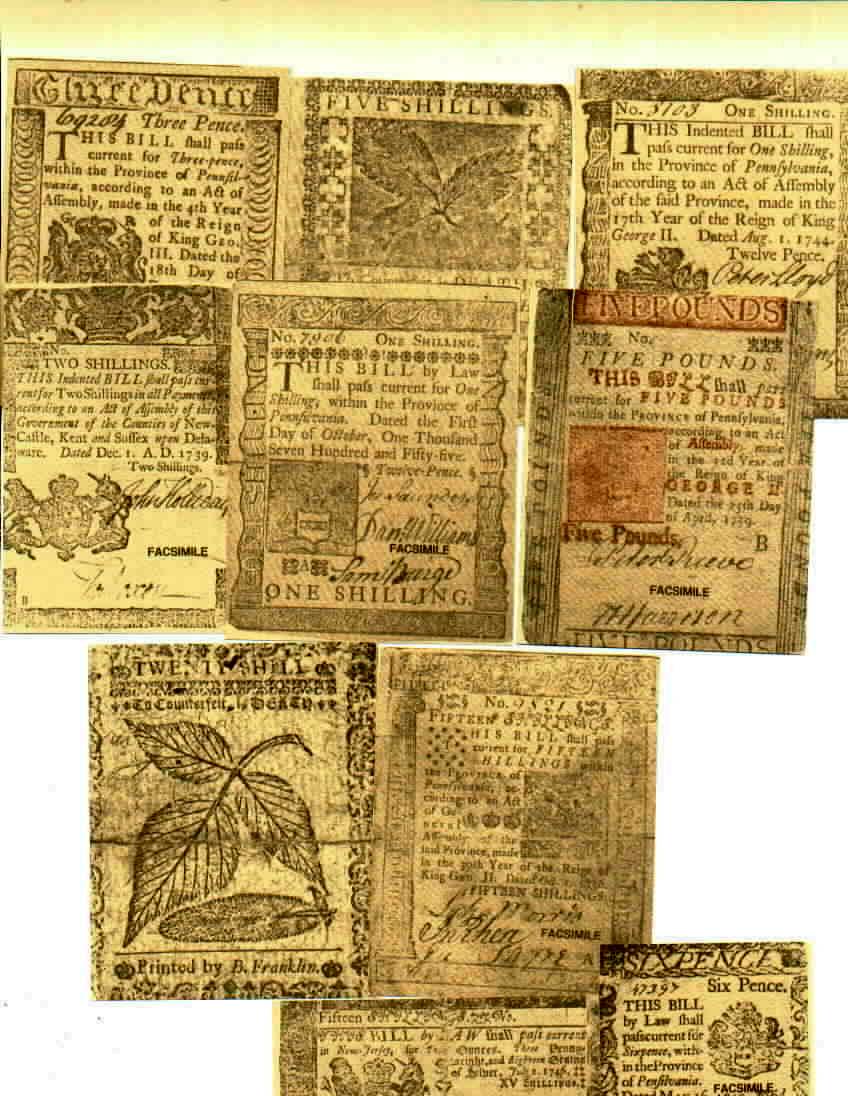 Three Pence
69204 Three Pence.
THIS BILL ſhall paſs
current for Three-pence,
within the Province of Pennſil-
vania, according to an Act of
Aſſembly, made in the 4th Year
of the Reign
of King Geo.
III. Dated the
18th Day of
FIVE SHILLINGS.
DEATH
No. 3103 ONE SHILLING.
THIS Indented BILL ſhall
paſs current for One Shilling,
in the Province of Pennſylvania,
according to an Act of Aſſembly
of the ſaid Province, made in the
17th Year of the Reign of King
George II. Dated Aug. 1. 1744.
Twelve Pence.
Peter Lloyd
No.
TWO SHILLINGS.
THIS Indented BILL ſhall paſs cur-
rent for Two Shillings in all Payments
according to an Act of Aſſembly of the
Government of the Counties of New-
Caſtle, Kent and Suſſex upon Dela-
ware. Dated Dec. 1. A.D. 1739.
Two Shillings.
FACSIMILE
B
No. 7906 ONE SHILLING.
THIS BILL by Law
ſhall paſs current for One
Shilling, within the Province of
Pennſylvania. Dated the Firſt
Day of October, One Thouſand
Seven Hundred and Fifty-five.
§ Twelve-Pence. §
Jo Saunders
Danl Williams
FACSIMILE
A
ONE SHILLING.
FIVE POUNDS
No.
FIVE POUNDS.
THIS BILL ſhall paſs
current for FIVE POUNDS
within the PROVINCE of Pennſylvania,
according to an Act
of Aſſembly, made
in the Year of
the Reign of King
GEORGE II
Dated the 25th Day
of April, 1759.
Five Pounds. B
FACSIMILE
FIVE POUNDS
TWENTY SHILL
To Counterfeit, is DEATH
Printed by B. Franklin.
No. 9821
FIFTEEN SHILLINGS.
THIS BILL ſhall paſs
current for FIFTEEN
SHILLINGS within
the PROVINCE of
Pennſylvania, ac-
cording to an Act
of Ge-
neral
Aſſembly of the
ſaid Province, made
in the 30th Year of the Reign of
King Geo. II. Dated Oct. 1. 1756.
FIFTEEN SHILLINGS.
Morris
FACSIMILE
Fifteen SHILLINGS. No.
THIS BILL by LAW ſhall paſs current
in New-Jerſey, for Ounces, Three Penny
weight, and Eighteen Grains
of Silver. July 2. 1746.
XV SHILLINGS.
SIXPENCE
47397 Six Pence.
THIS BILL
by Law ſhall
paſs current for
Sixpence, with-
in the Province
of Penſilvania.
FACSIMILE